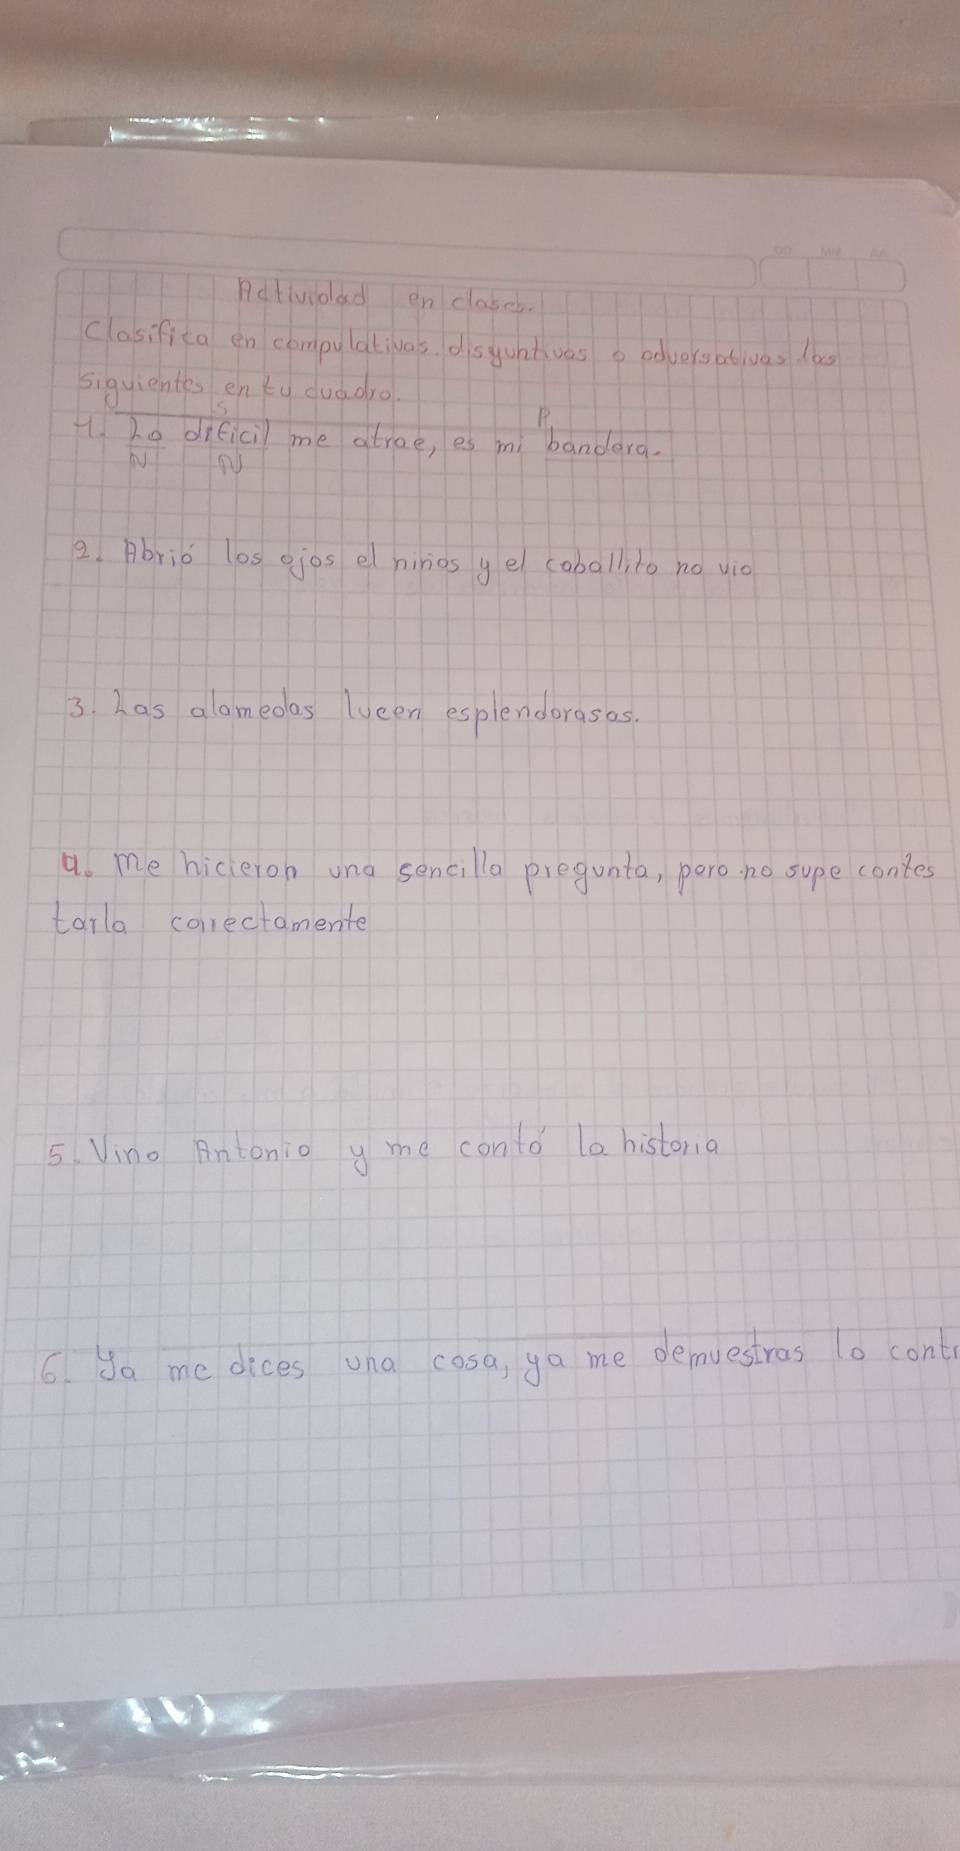 DD MM AA
Actividad en clases.
Clasifica en compulativas. disyuntivas o adversativas las
siguientes en tu cuadro.
S P
1. Lo dificil me atrae, es mi bandera.
N N
2. Abrió los ojos el niños y el caballito no vio
3. Las alamedas lucen esplendorasas.
4. me hicieron una sencilla pregunta, pero no supe contes
tarla corectamente
5. Vino Antonio y me contó la historia
6. Ya me dices una cosa, ya me demuestras lo contr